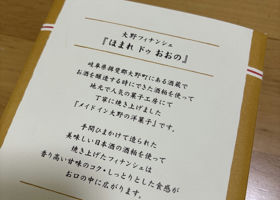 大野フィナンシェ
『ほまれ ドゥ おおの』
岐阜県揖斐郡大野町にある酒蔵で
お酒を醸造する時にできた酒粕を使って
地元で人気の菓子工房にて
丁寧に焼き上げました
『メイドイン大野の洋菓子』です。
手間ひまかけて造られた
美味しい日本酒の酒粕を使って
焼き上げたフィナンシェは
香り高い甘味のコク・しっとりとした食感が
お口の中に広がります。